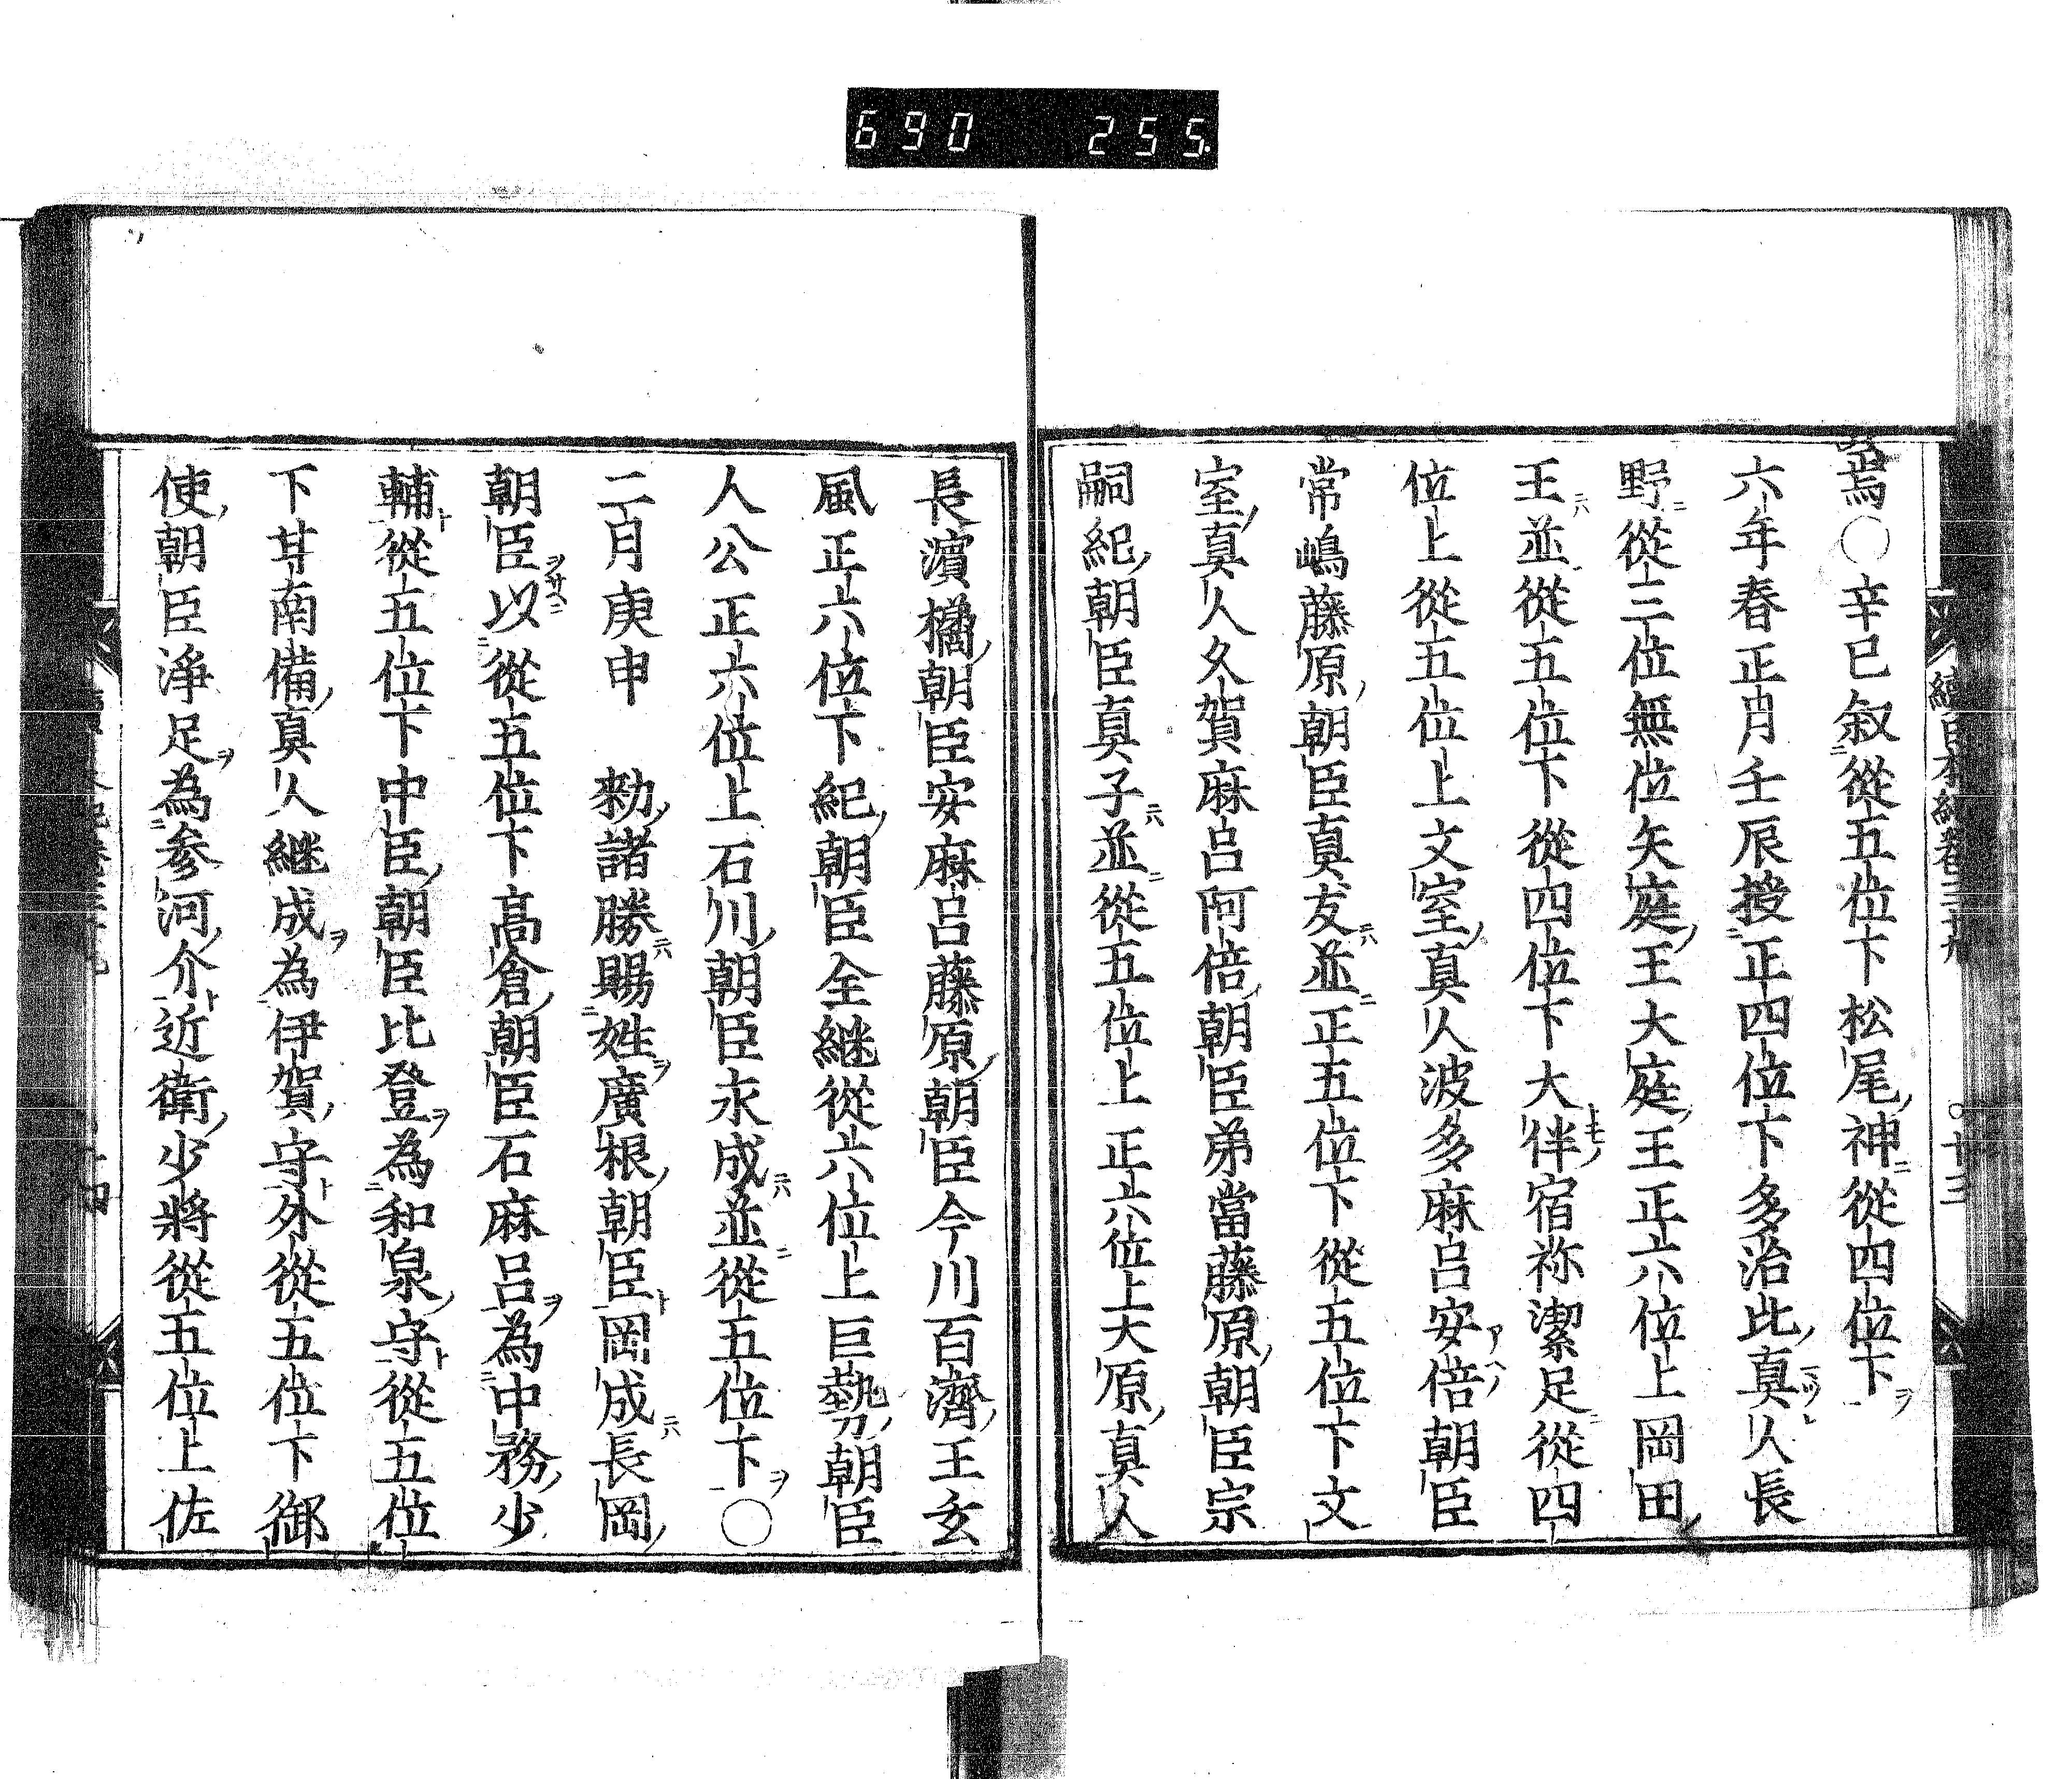 690 255.
焉○辛巳叙從五位下松尾神從四位下
六年春正月壬辰授正四位下多治比真人長
野從三位無位矢庭王大庭王正六位上岡田
王並從五位下從四位下大伴宿祢潔足從四
位上從五位上文室真人波多麻呂安倍朝臣
常嶋藤原朝臣真友並正五位下從五位下文
室真人久賀麻呂阿倍朝臣弟當藤原朝臣宗
嗣紀朝臣真子並從五位上正六位上大原真人
長濵橘朝臣安麻呂藤原朝臣今川百濟王玄
風正六位下紀朝臣全継從六位上巨勢朝臣
人公正六位上石川朝臣永成並從五位下○
二月庚申 勑諸勝賜姓廣根朝臣岡成長岡
朝臣以從五位下髙倉朝臣石麻呂為中務少
輔從五位下中臣朝臣比登為和泉守從五位
下甘南備真人継成為伊賀守外從五位下御
使朝臣淨足為参河介近衛少將從五位上佐